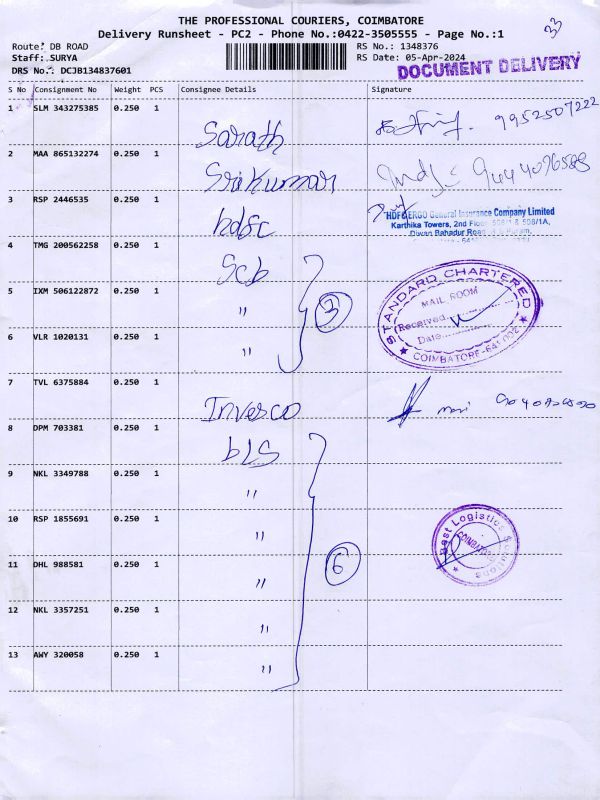 THE PROFESSIONAL COURIERS, COIMBATORE
33
Delivery Runsheet - PC2 - Phone No.:0422-3505555 - Page No.:1
Route: DB ROAD
RS No.: 1348376
Staff: SURYA
RS Date: 05-Apr-2024
DRS No.: DCJB134837601
DOCUMENT DELIVERY
S No Consignment No Weight PCS Consignee Details Signature
1 SLM 343275385 0.250 1 Sarath 9952507222
2 MAA 865132274 0.250 1 Srikumar
3 RSP 2446535 0.250 1 hdfc
HDFC ERGO General Insurance Company Limited
Karthika Towers, 2nd Floor,
Diwan Bahadur Road,
4 TMG 200562258 0.250 1 Scb
5 IXM 506122872 0.250 1 "
3
6 VLR 1020131 0.250 1 "
STANDARD CHARTERED
MAIL ROOM
Received
Date
COIMBATORE-641 002
7 TVL 6375884 0.250 1 Invesco
8 DPM 703381 0.250 1 bLS
9 NKL 3349788 0.250 1 "
10 RSP 1855691 0.250 1 "
Best Logistics Solutions
COIMBATORE
11 DHL 988581 0.250 1 "
6
12 NKL 3357251 0.250 1 "
13 AWY 320058 0.250 1 "